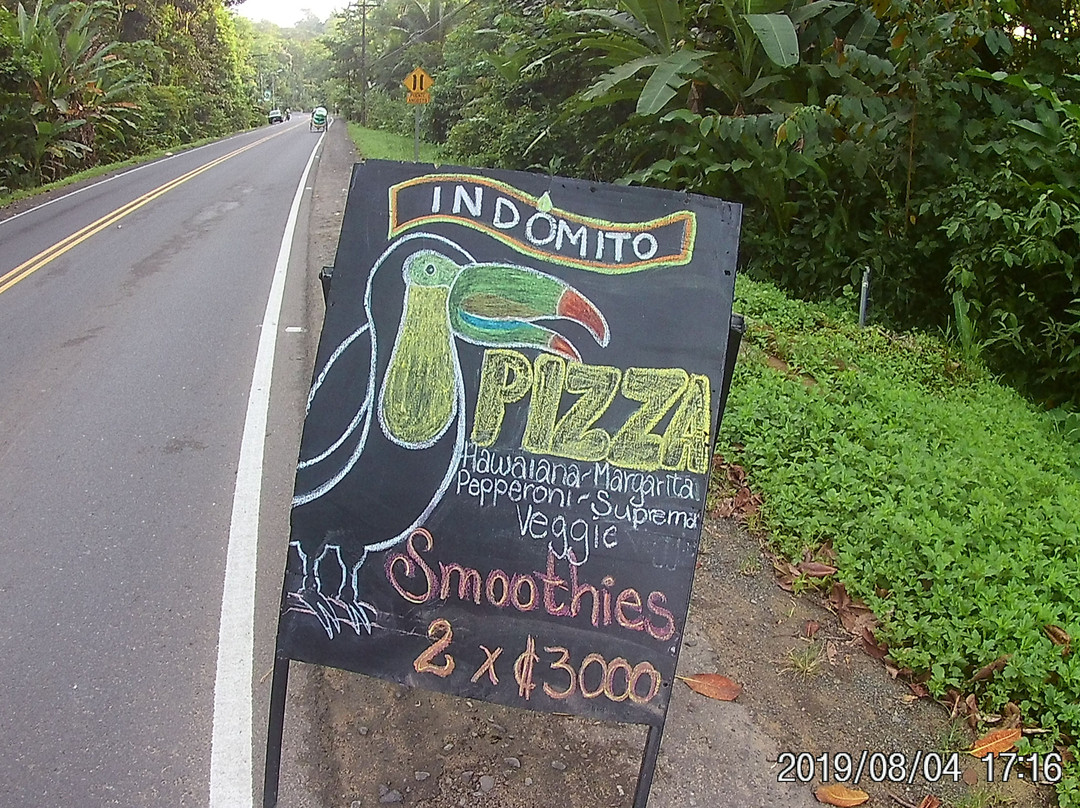 INDÓMITO
PIZZA
Hawaiana-Margarita
Pepperoni-Suprema
Veggie
Smoothies
2 x ₡3000
2019/08/04 17:16